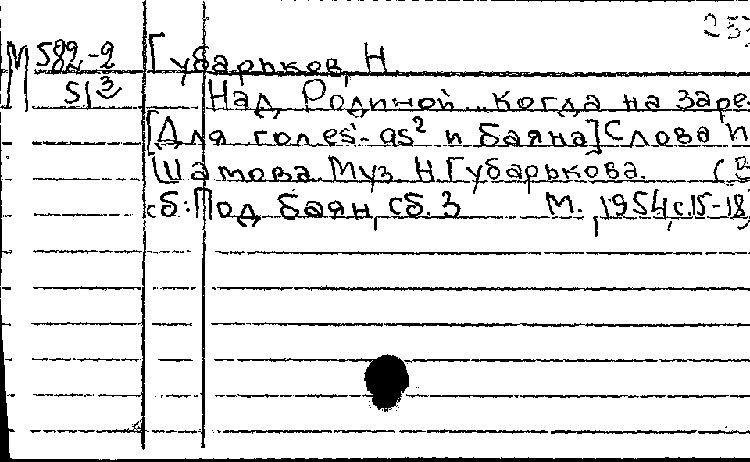 253
М 582-2
513
Губарьков, Н.
Над Родиной... Когда на заре.
[Для гол. es¹-as² и баяна] Слова П.
Шатова. Муз. Н. Губарькова. (В
сб: Под баян, сб. 3 М., 1954, с. 15-18)